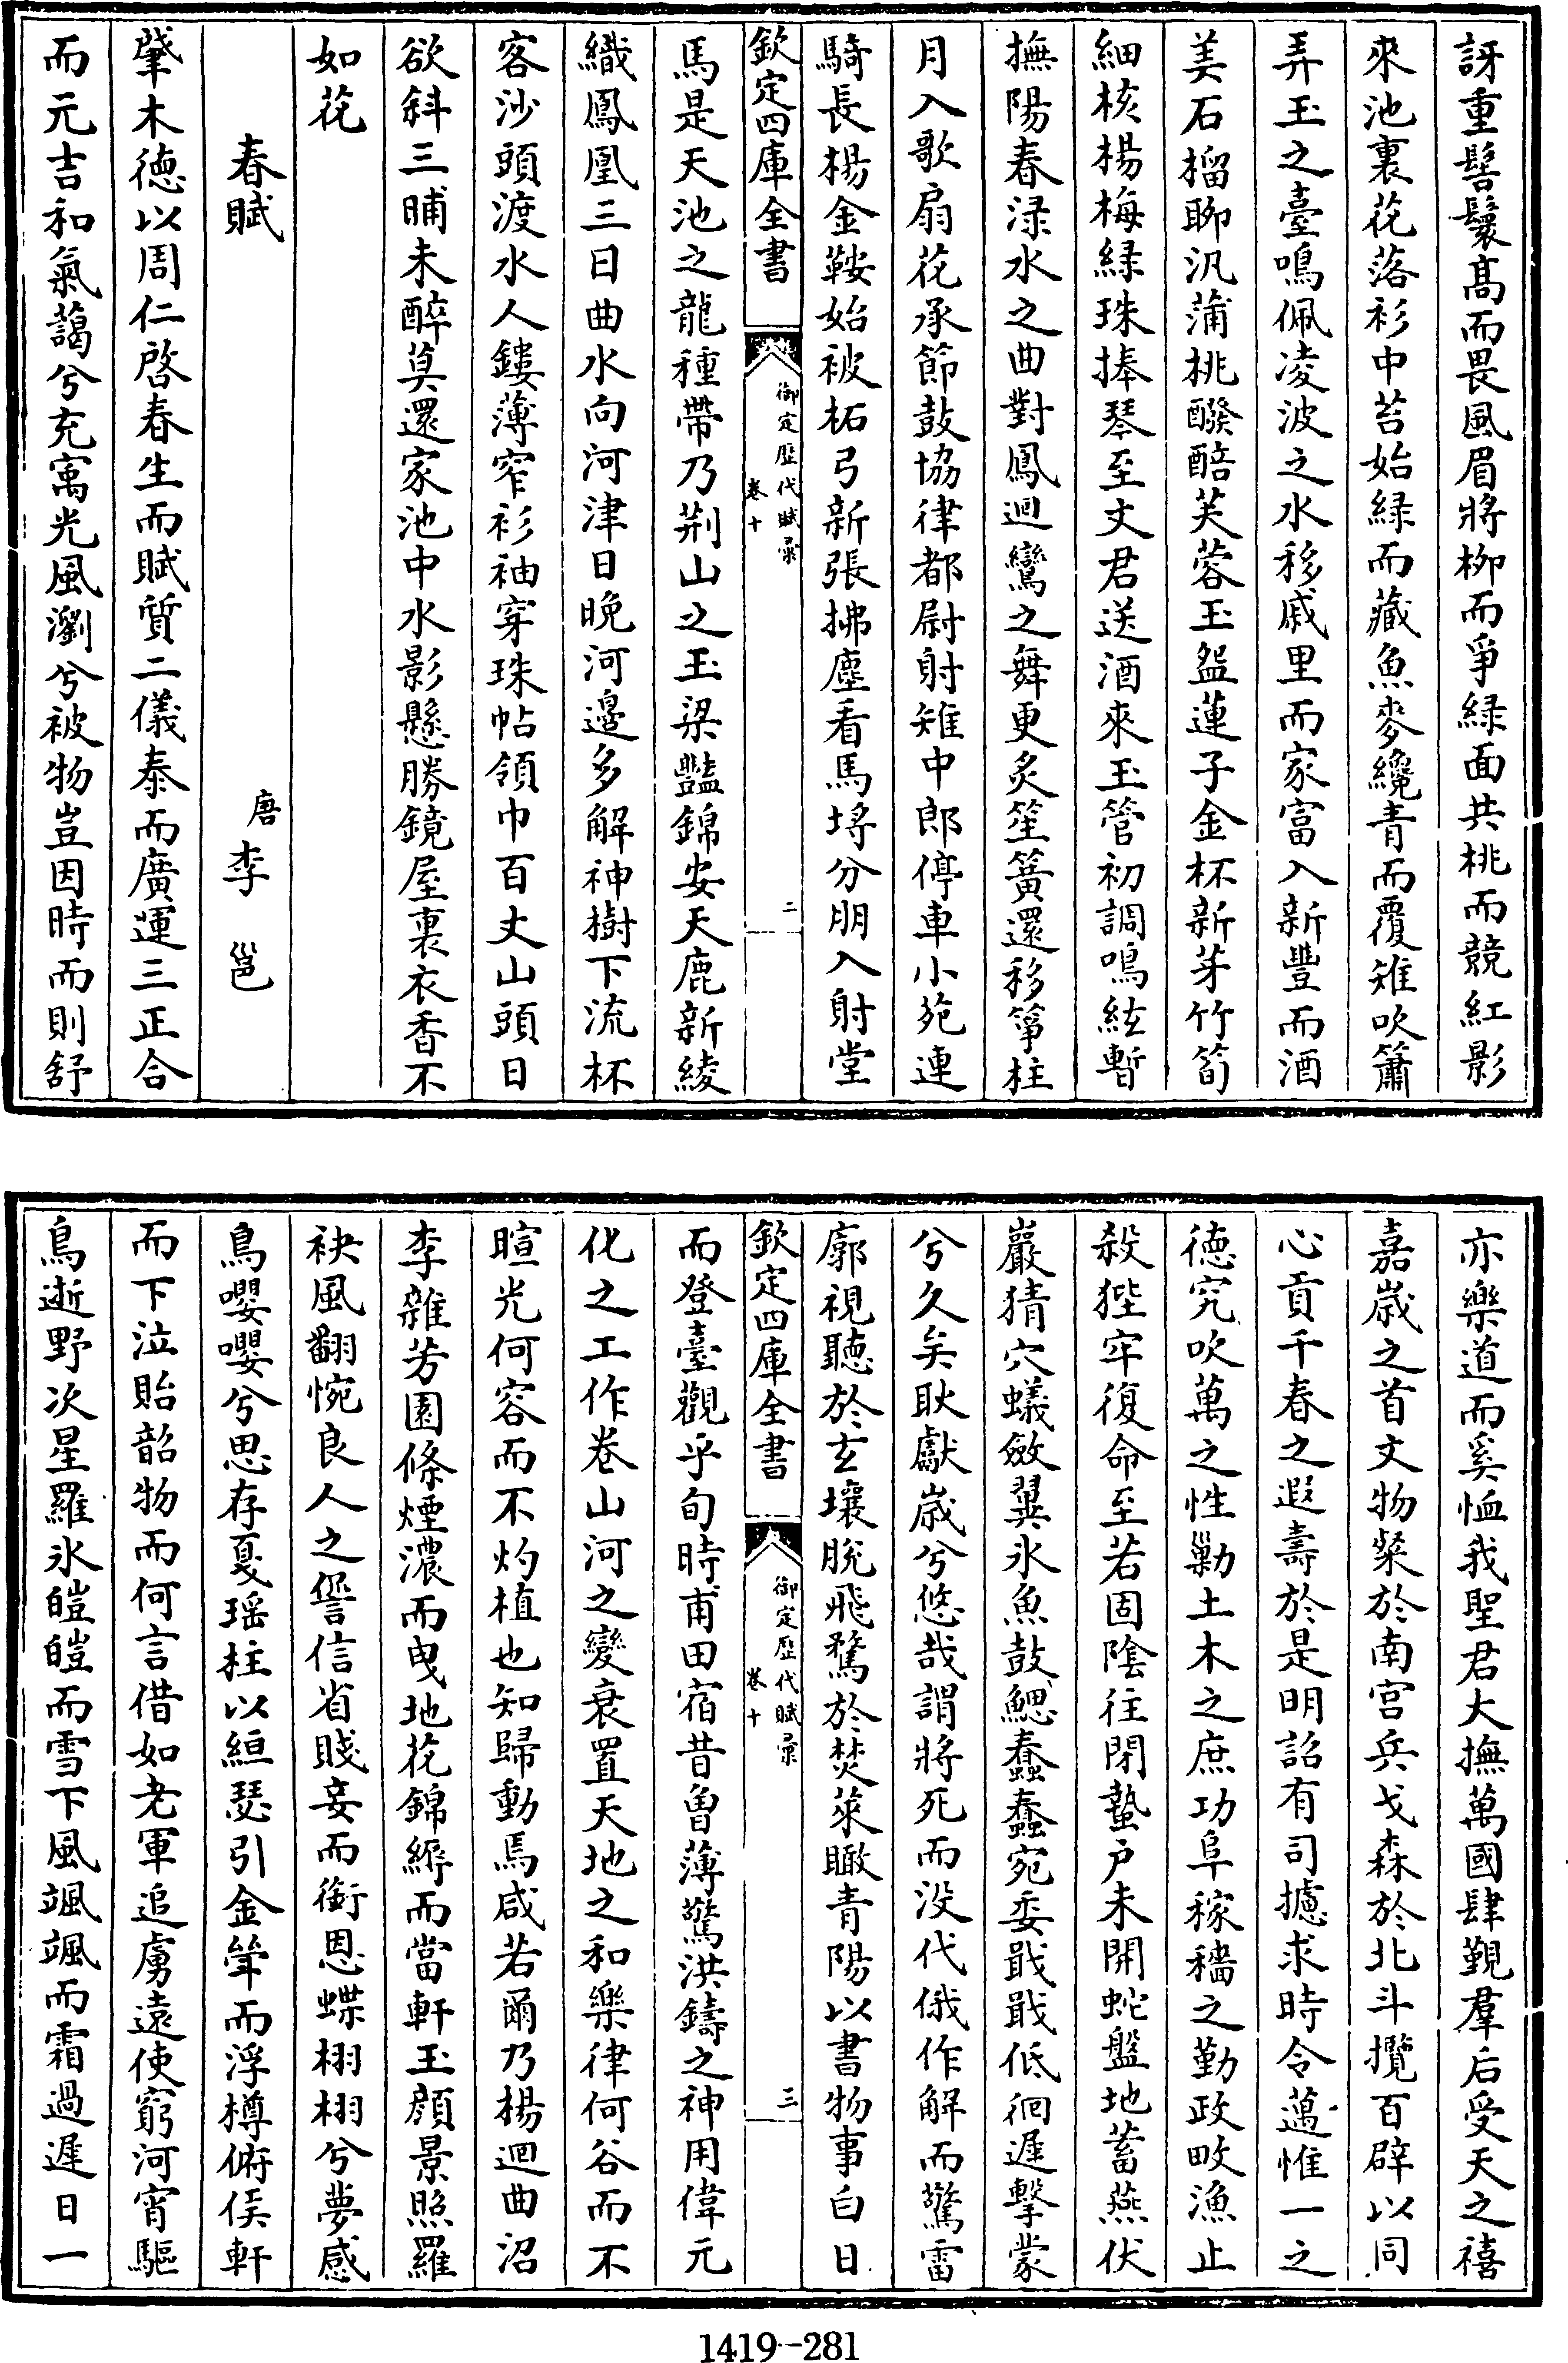 訝重髻鬟髙而畏風眉將栁而爭綠面共桃而競紅影
來池裏花落衫中苔始綠而藏魚麥纔青而覆雉吹簫
弄玉之臺鳴佩凌波之水移戚里而家富入新豐而酒
美石榴聊汎蒲桃醱醅芙蓉玉盌蓮子金杯新芽竹筍
細核楊梅綠珠捧琴至文君送酒來玉管初調鳴絃暫
撫陽春淥水之曲對鳳迴鸞之舞更炙笙簧還移箏柱
月入歌扇花承節鼓協律都尉射雉中郎停車小苑連
騎長楊金鞍始被柘弓新張拂塵看馬埒分朋入射堂
欽定四庫全書
御定歷代賦彙
卷十
二
馬是天池之龍種帶乃荆山之玉梁豔錦安天鹿新綾
織鳳凰三日曲水向河津日晚河邊多解神樹下流杯
客沙頭渡水人鏤薄窄衫袖穿珠帖領巾百丈山頭日
欲斜三晡未醉莫還家池中水影懸勝鏡屋裏衣香不
如花
春賦 唐 李邕
肇木德以周仁啓春生而賦質二儀泰而廣運三正合
而元吉和氣藹兮充寓光風瀏兮被物豈因時而則舒
亦樂道而奚恤我聖君大撫萬國肆覲羣后受天之禧
嘉歲之首文物粲於南宫兵戈森於北斗攬百辟以同
心貢千春之遐壽於是明詔有司攄求時令邁惟一之
德究吹萬之性勦土木之庶功阜稼穡之勤政畋漁止
殺狴牢復命至若固陰往閉蟄户未開蛇盤地蓄燕伏
巖猜穴蟻斂翼氷魚鼓鰓蠢蠢宛委戢戢低徊遲擊蒙
兮久矣耿獻歲兮悠哉謂將死而没代俄作解而驚雷
廓視聽於玄壤脫飛騖於焚萊瞰青陽以書物事白日
欽定四庫全書
御定歷代賦彙
卷十
三
而登臺觀乎旬時甫田宿昔曽薄驚洪鑄之神用偉元
化之工作卷山河之變衰置天地之和樂律何谷而不
暄光何容而不灼植也知歸動焉咸若爾乃楊迴曲沼
李雜芳園條煙濃而曳地花錦縟而當軒玉顔景照羅
袂風翻惋良人之誓信省賤妾而銜恩蝶栩栩兮夢感
鳥嚶嚶兮思存戛瑶柱以絙瑟引金斝而浮樽俯侯軒
而下泣貽韶物而何言借如老軍追虜遠使窮河宵驅
鳥逝野次星羅氷皚皚而雪下風颯颯而霜過遲日一
1419-281